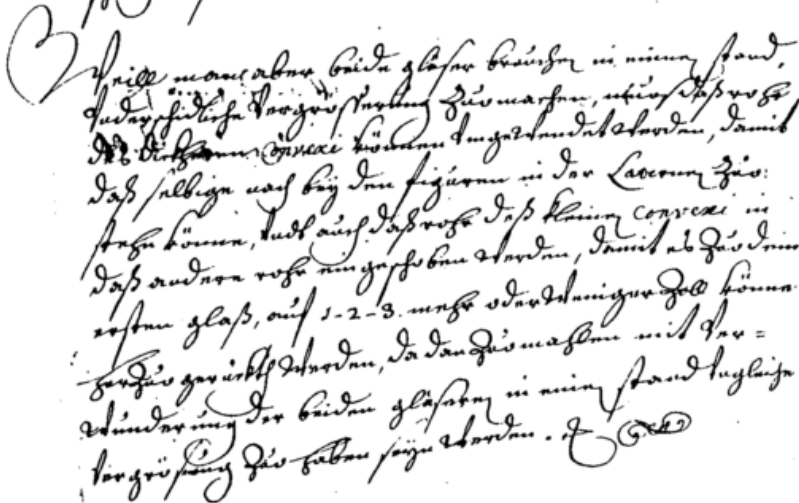 Weill man aber beide gleser brauchen in einem stand,
Vnderschidliche Vergrösserung Zuo machen, muos daß rohr
deß dickheren convexi können Vmgewendet werden, damit
daß selbige nach bey den figuren in der Laternen Zuo
stehn könne, Vndt auch daß rohr deß kleinen convexi in
daß andere rohr ein geschoben werden, damit es Zuo dem
ersten glaß, auf 1-2-3. mehr oder weniger Zoll könne
herZuo geruckht werden, da dan Zuo mahlen mit Ver=
wunderung der beiden gläseren in einem stand Vngleiche
Vergrösung Zuo haben seyn werden.